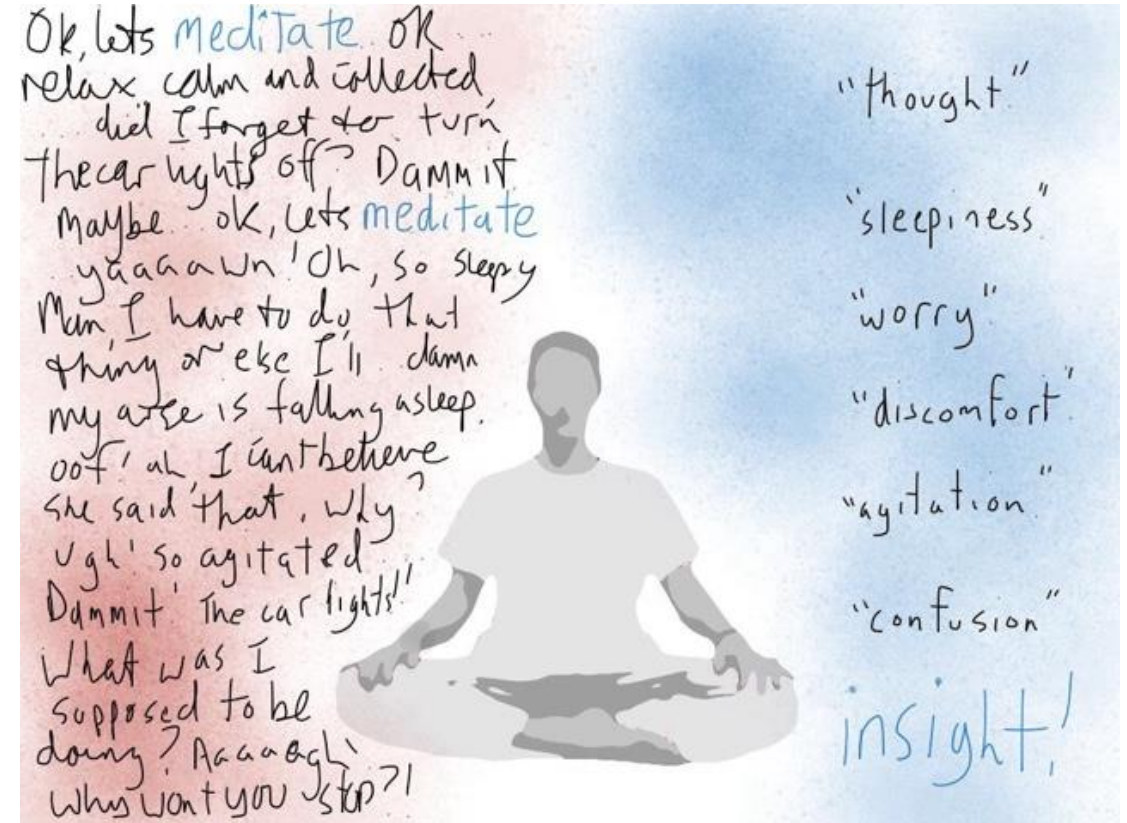 Ok, lets meditate. Ok
relax calm and collected
did I forget to turn
the car lights off? Dammit
maybe... ok, lets meditate
yaaaawn! Oh, so sleepy
Man, I have to do that
thing or else I'll damn
my arse is falling asleep.
oof! ah, I cant believe
she said that, why?
ugh! so agitated
Dammit! The car lights!!
What was I
supposed to be
doing? Aaaaagh!
why wont you stop?!
"thought"
"sleepiness"
"worry"
"discomfort"
"agitation"
"confusion"
insight!